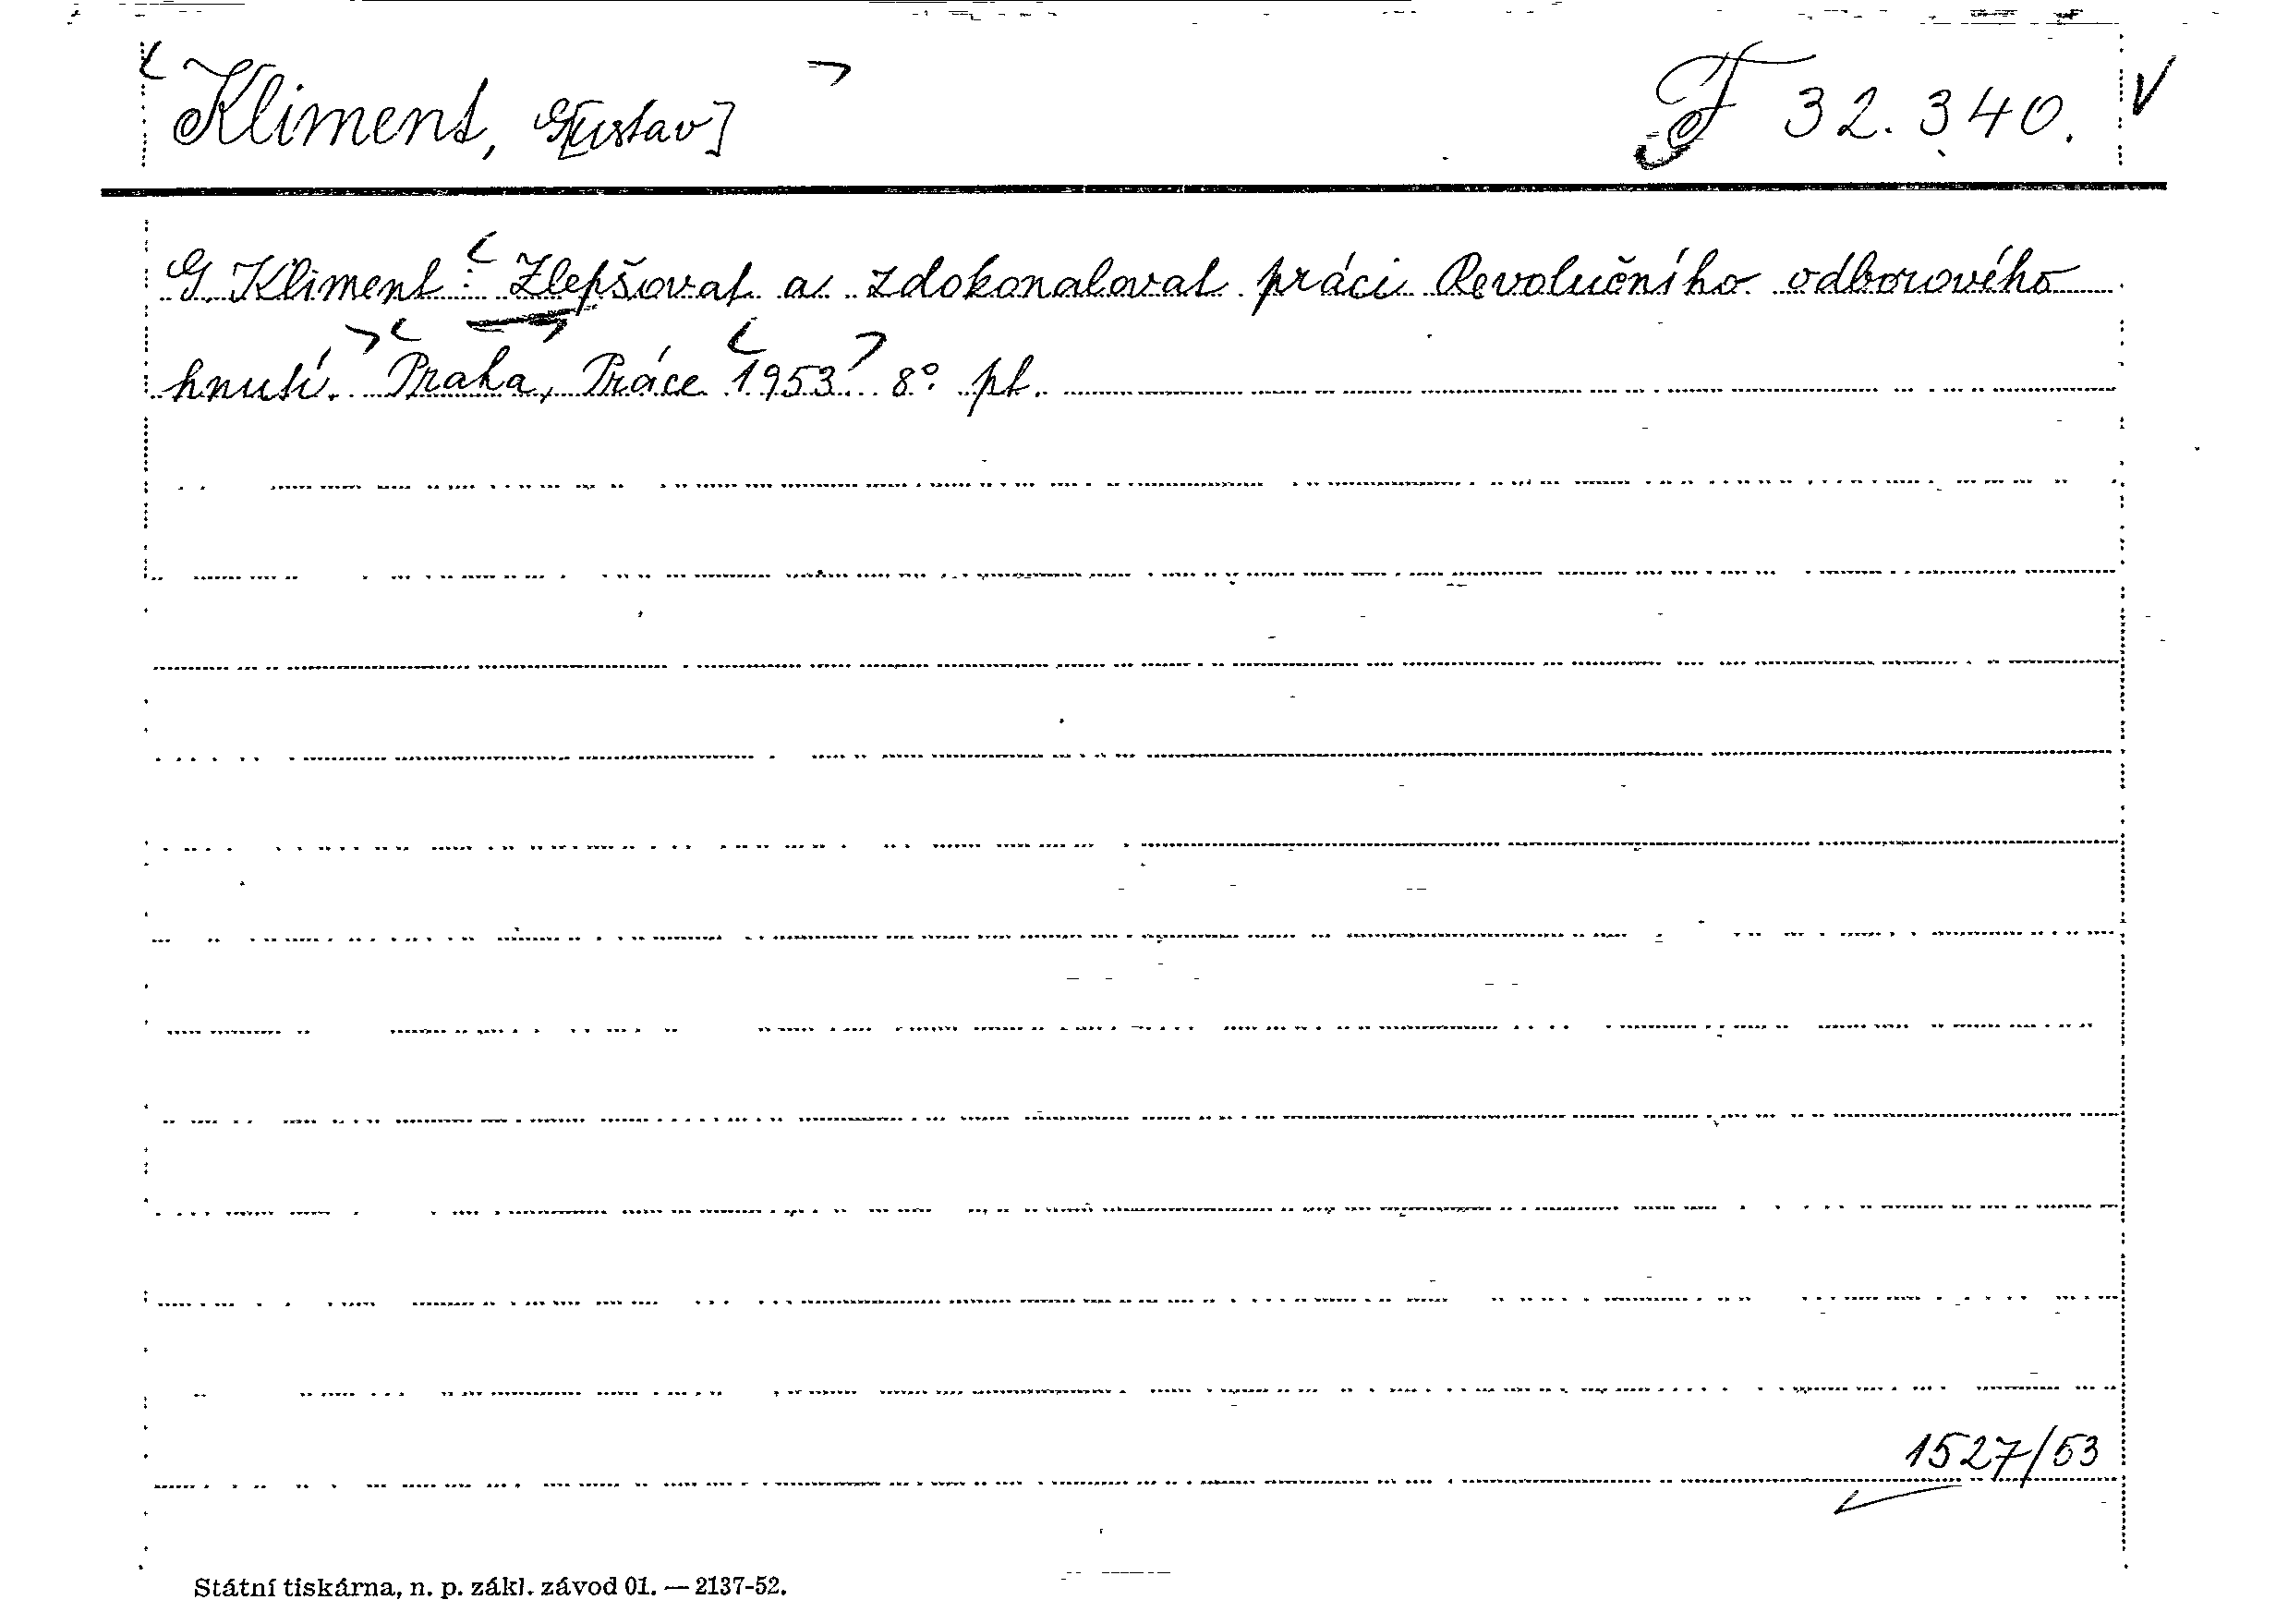 Kliment, G[ustav] F 32.340.
G. Kliment: Zlepšovat a zdokonalovat práci Revolučního odborového
hnutí. Praha, Práce 1953. 8°. pt.
1527/53
Státní tiskárna, n. p. zákl. závod 01. — 2137-52.